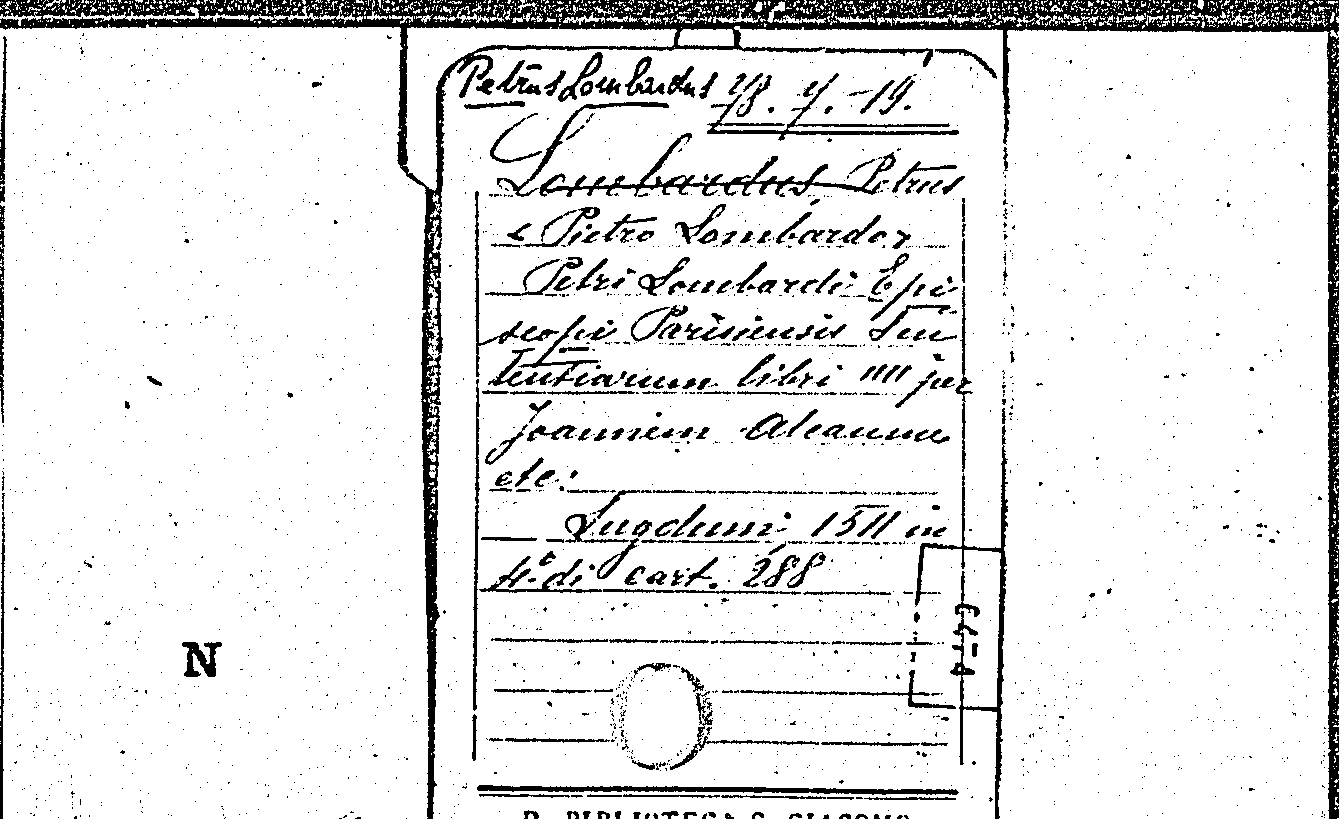 Petrus Lombardus 78. 7. -19.
Lombardus Petrus
< Pietro Lombardo >
Petri Lombardi Epi
scopi Parisiensis Sen
tentiarum libri IIII per
Joannem Aleaume
etc:
Lugduni 1511 in
4.º di cart. 288
N
R. BIBLIOTECA S. GIACOMO